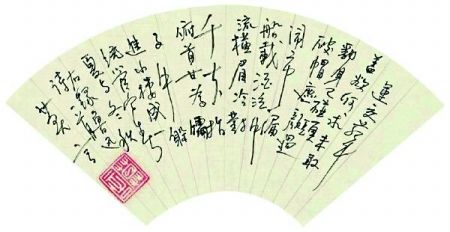 運交華
蓋欲何求未敢
翻身已碰頭
破帽遮顏過
鬧市漏
船載酒泛中
流橫眉冷對
千夫指
俯首甘為孺
子牛躲
進小樓成一
統管它冬
夏與春秋
右錄魯迅
詩